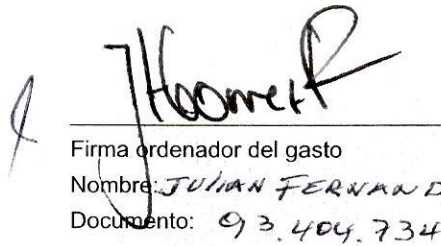 Firma ordenador del gasto
Nombre: JULIAN FERNAND
Documento: 93.404.734